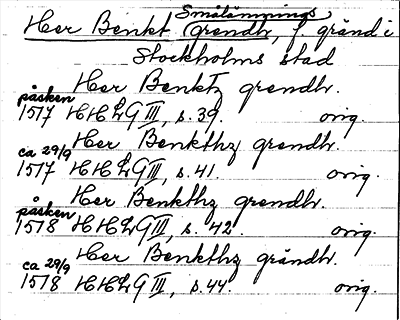 Smålännings
Her Benkt (grendh, f gränd i
Stockholms stad
Her Benktz grendh.
påsken
1517 HHLG III, s. 39. orig.
Her Benkthz grendh.
ca 29/9
1517 HHLG III, s. 41. orig.
Her Benkthz grendh.
påsken
1518 HHLG III, s. 42. orig.
Her Benkthz grändh.
ca 29/9
1518 HHLG III, s. 44. orig.